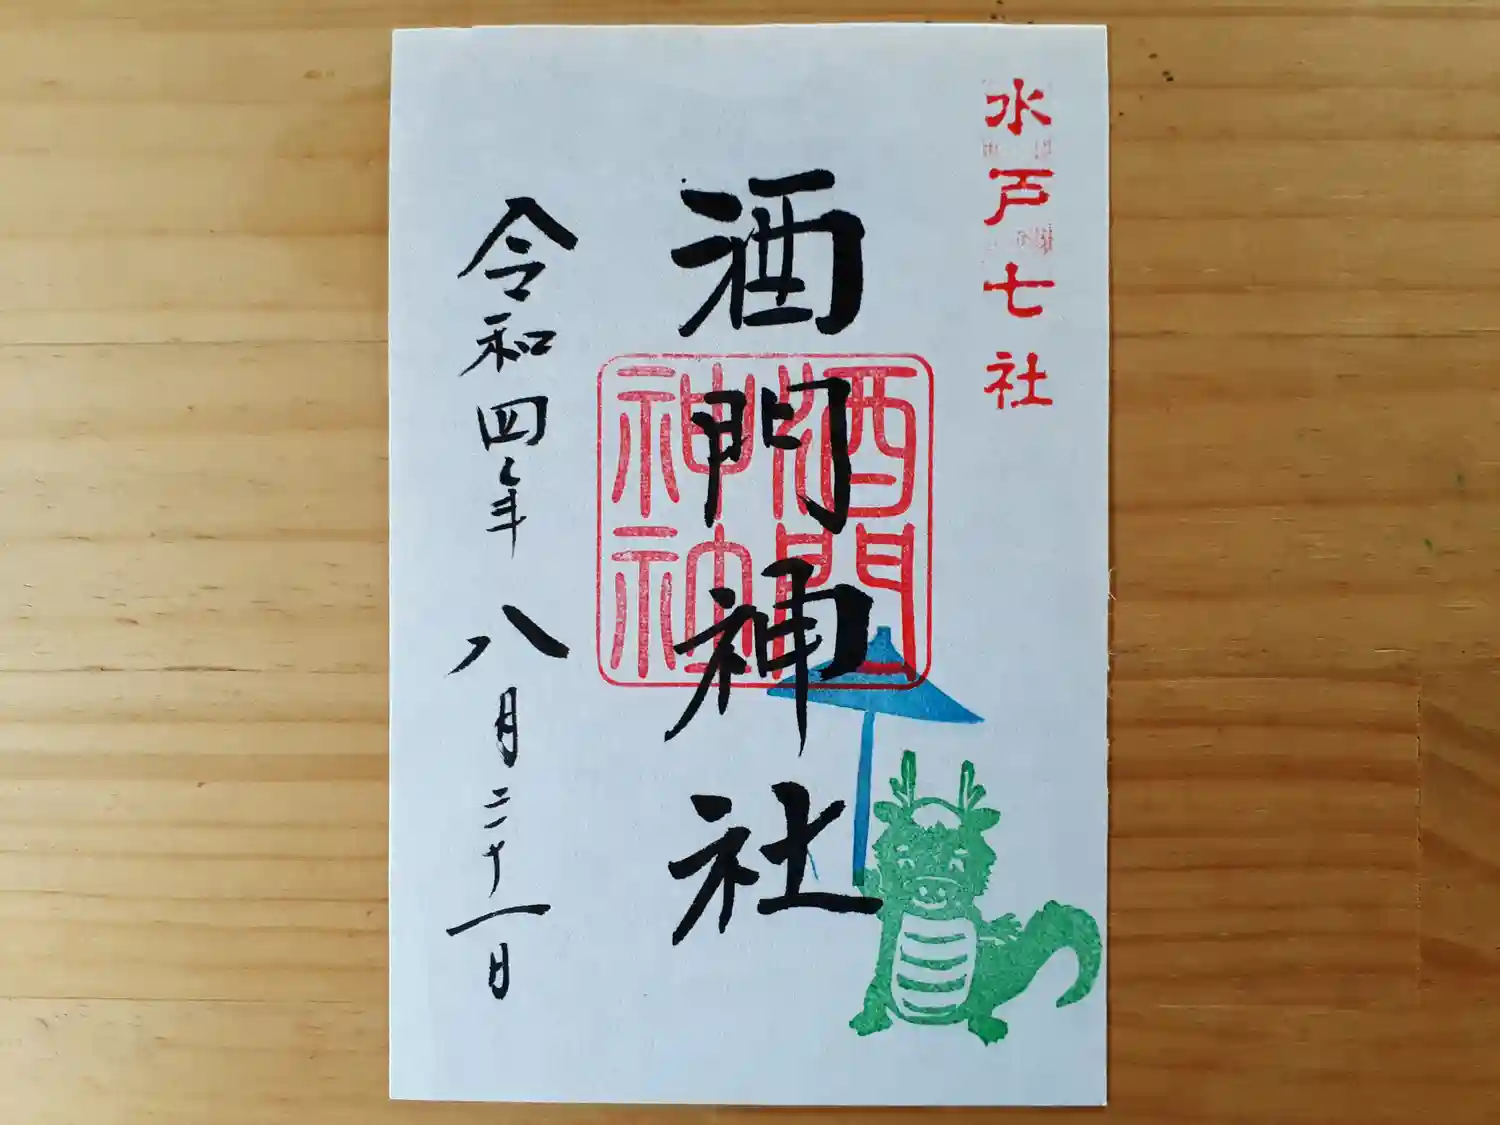 水戸七社
酒門神社
酒門
神社
令和四年 八月二十一日